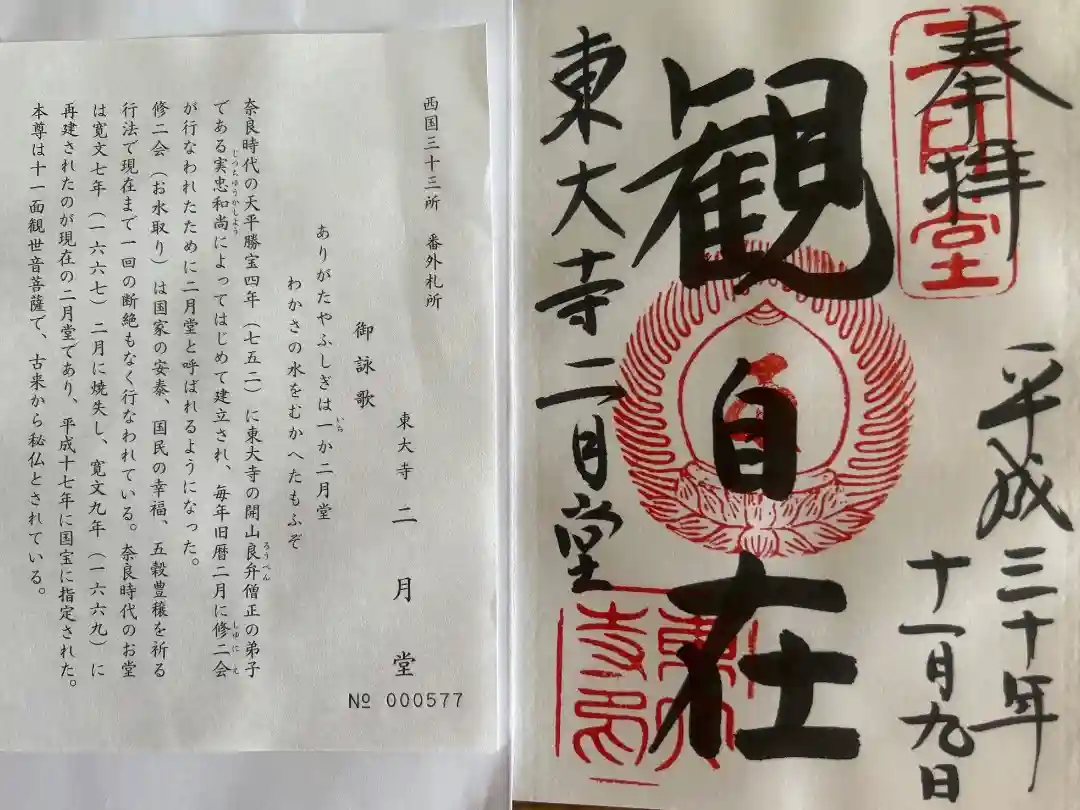 西国三十三所 番外札所
東大寺 二月堂
御詠歌
ありがたやふしぎは一か二月堂
いち
わかさの水をむかへたもふぞ
奈良時代の天平勝宝四年(七五二)に東大寺の開山良弁僧正の弟子
ろうべん
である実忠和尚によってはじめて建立され、毎年旧暦二月に修二会
じっちゅうかしょう
しゅにえ
が行なわれたために二月堂と呼ばれるようになった。
修二会(お水取り)は国家の安泰、国民の幸福、五穀豊穣を祈る
行法で現在まで一回の断絶もなく行なわれている。奈良時代のお堂
は寛文七年(一六六七)二月に焼失し、寛文九年(一六六九)に
再建されたのが現在の二月堂であり、平成十七年に国宝に指定された。
本尊は十一面観世音菩薩で、古来から秘仏とされている。
№ 000577
奉拝
二月堂
平成三十年
十一月九日
観自在
東大寺二月堂
東大寺印